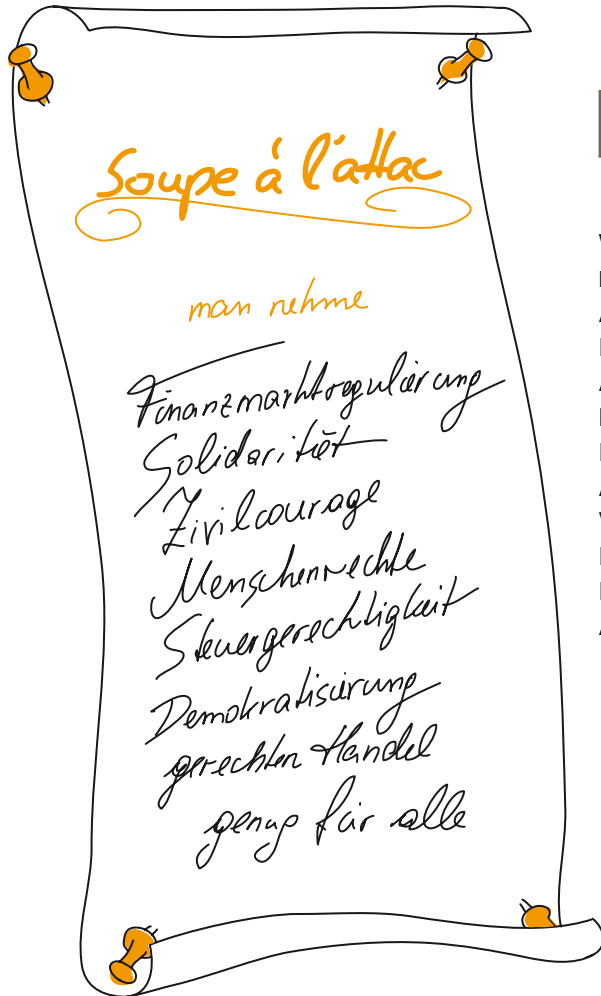 Soupe à l'attac
man nehme
Finanzmarktregulierung
Solidarität
Zivilcourage
Menschenrechte
Steuergerechtigkeit
Demokratisierung
gerechten Handel
genug für alle